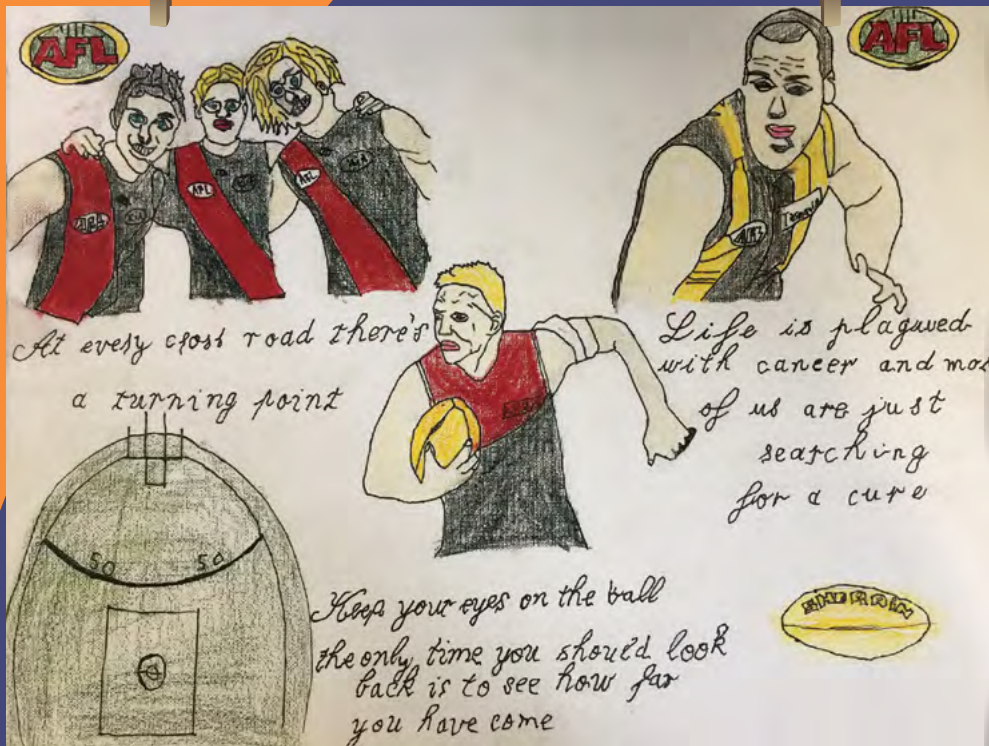 AFL
AFL
AFL
AFL
At every cross road there's
a turning point
Life is plagued
with cancer and mos
of us are just
searching
for a cure
50 50
Keep your eyes on the ball
the only time you should look
back is to see how far
you have come
SHERRIN